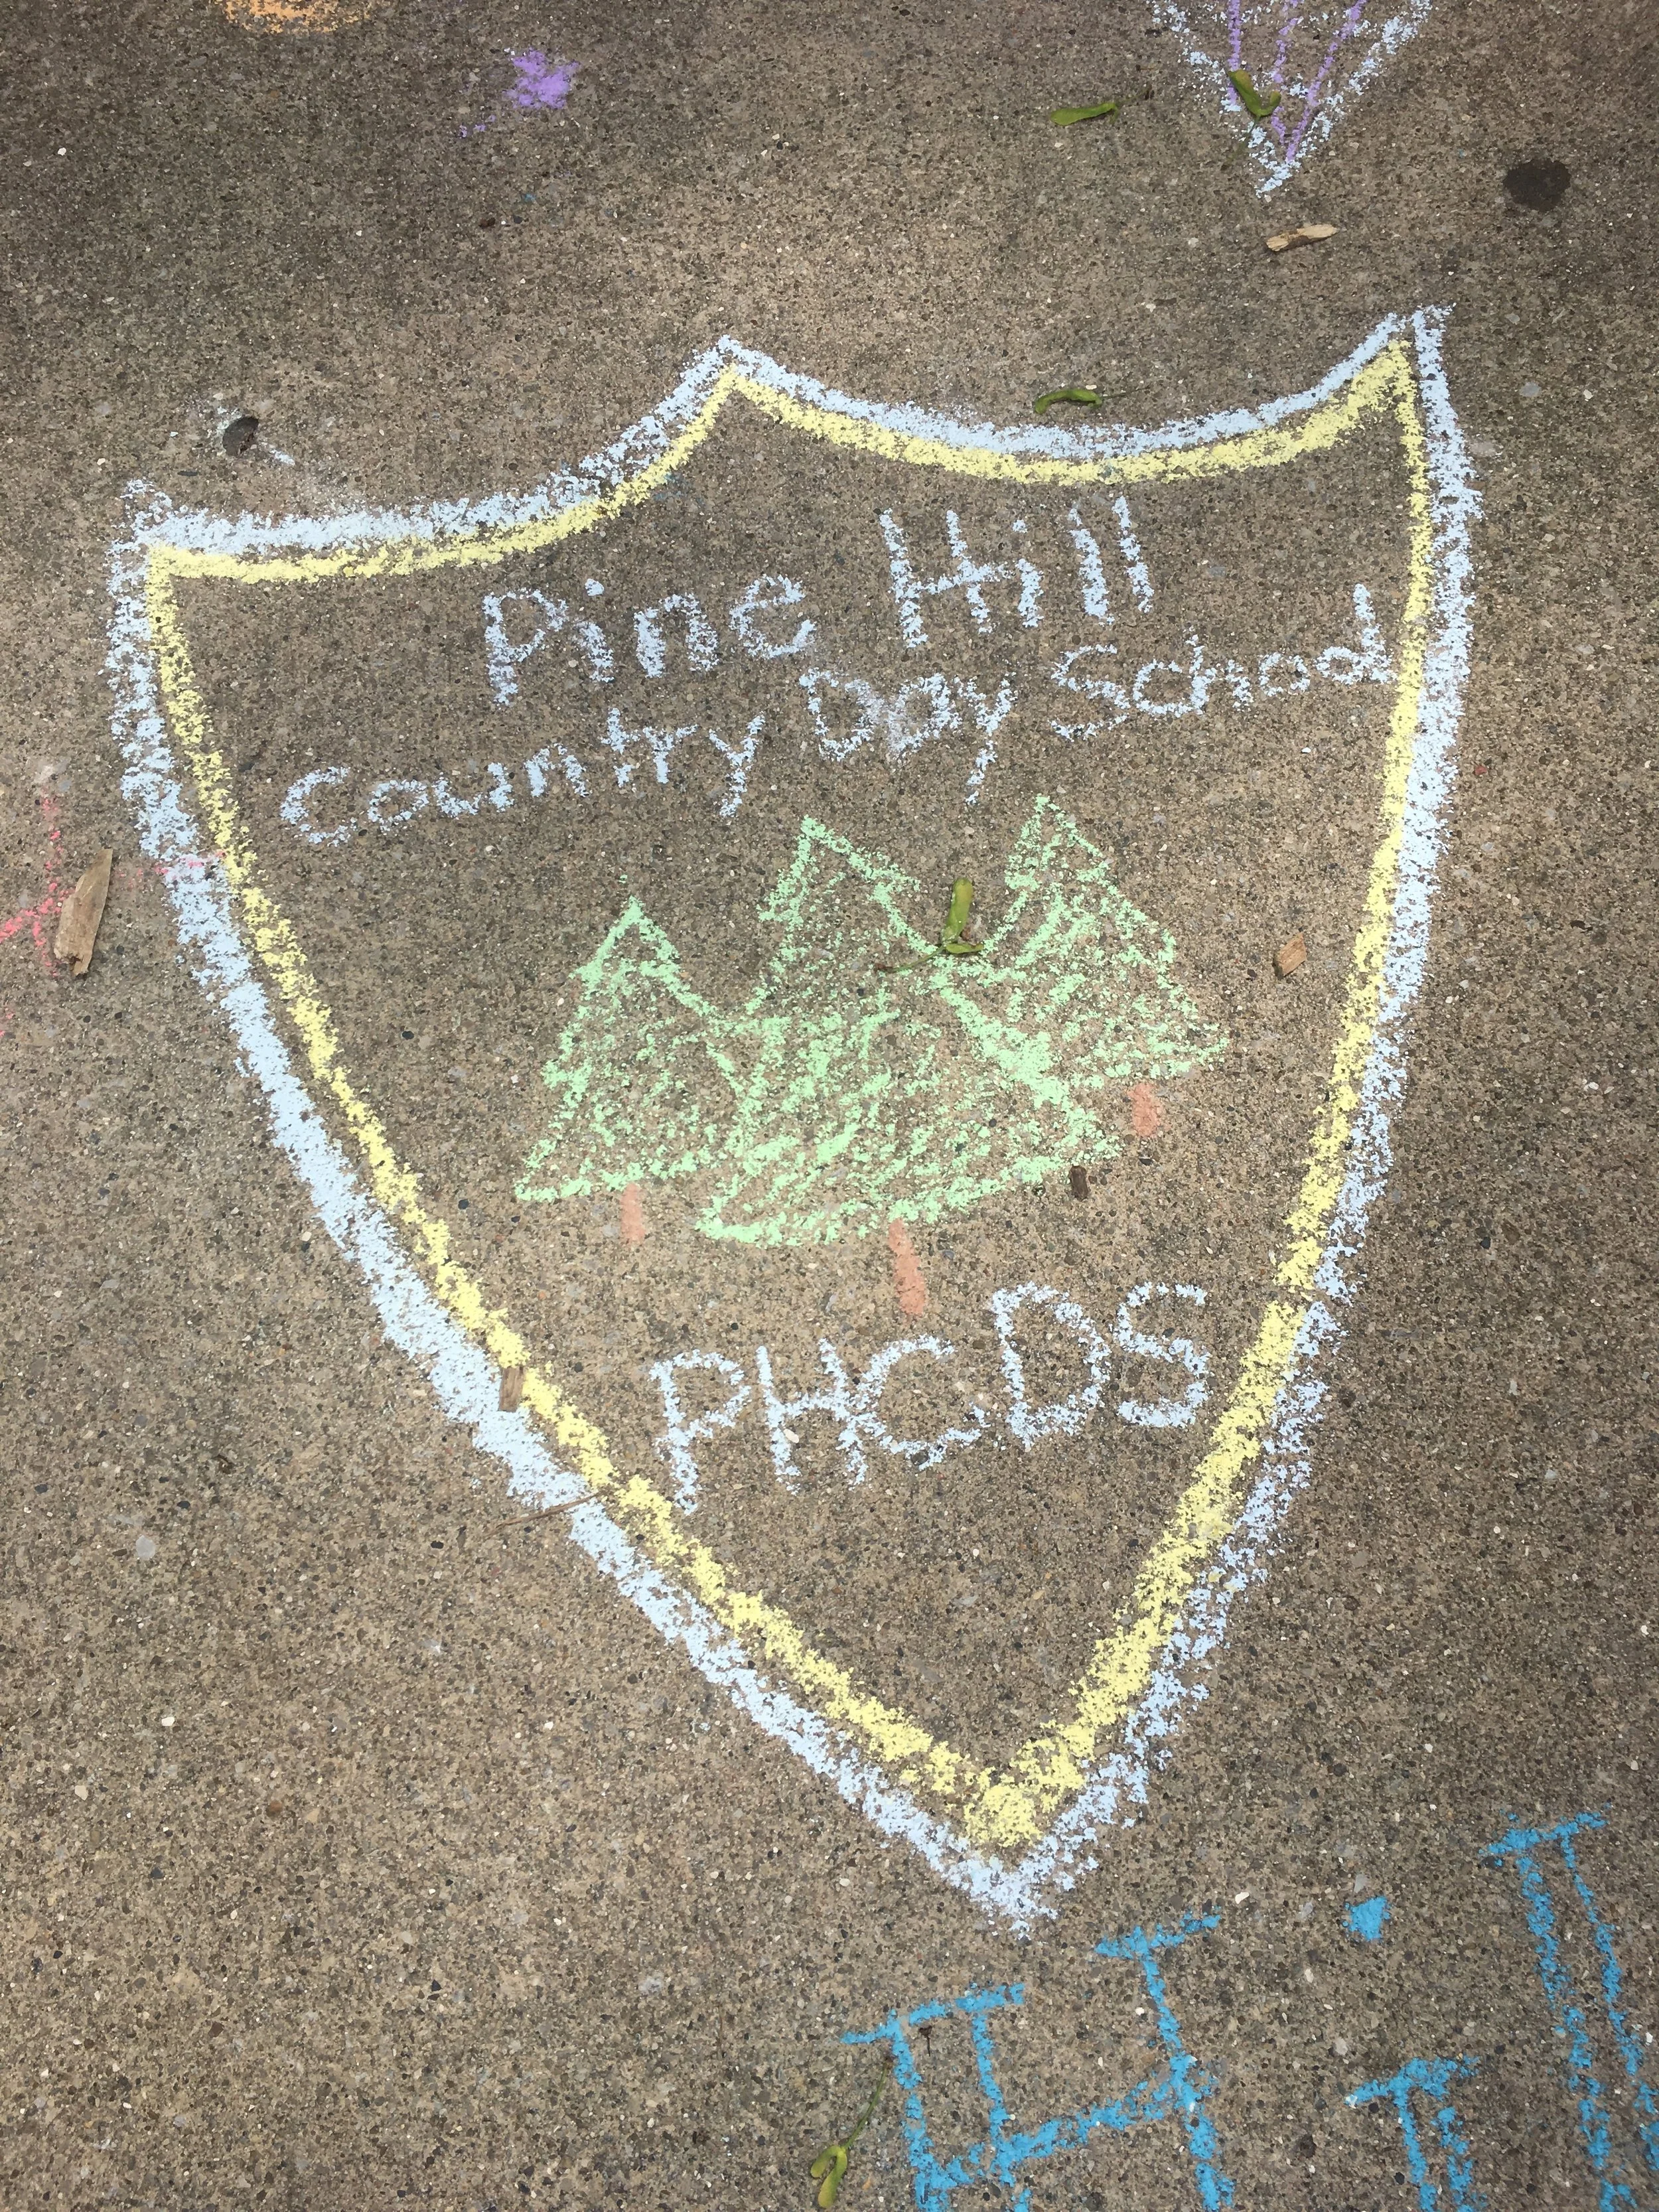 Pine Hill
Country Day School
PHCDS